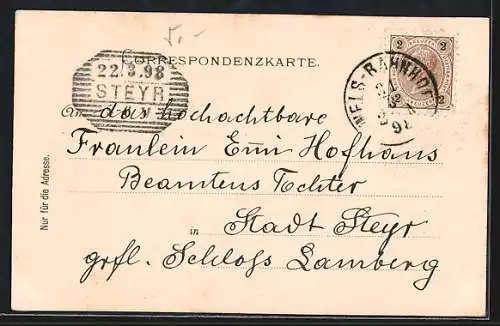 5.-
CORRESPONDENZKARTE.
2 2
2 2
22.3.98
STEYR
WELS-BAHNHOF
98
An das hochachtbare
Fräulein Emi Hofhaus
Beamtens Tochter
in Stadt Steyr
grfl. Schloss Lamberg
Nur für die Adresse.